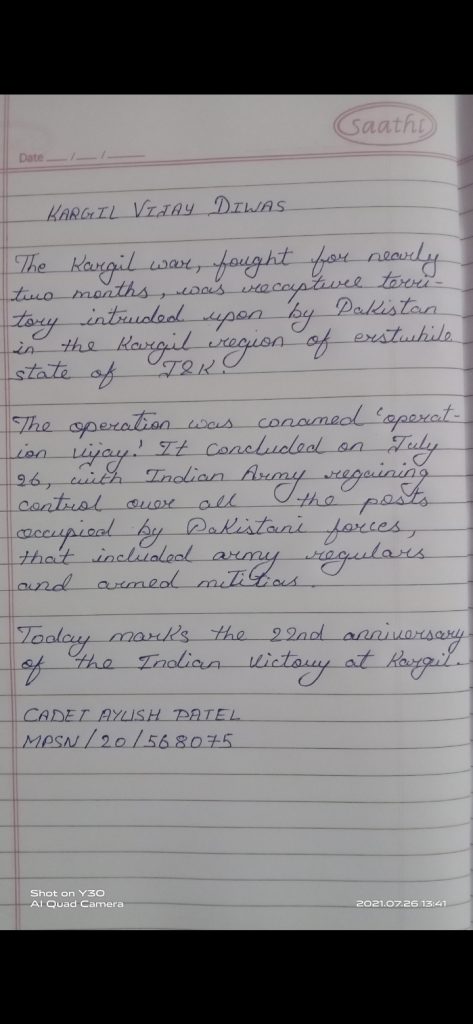 saathi
Date __/__/____
KARGIL VIJAY DIWAS
The Kargil war, fought for nearly
two months, was recapture terri-
tory intruded upon by Pakistan
in the Kargil region of erstwhile
state of J&K.
The operation was conamed 'operat-
ion vijay.' It concluded on July
26, with Indian Army regaining
control over all the posts
occupied by Pakistani forces,
that included army regulars
and armed militias.
Today marks the 22nd anniversary
of the Indian Victory at Kargil.
CADET AYUSH PATEL
MPSN/20/568075
Shot on Y30
AI Quad Camera
2021.07.26 13:41